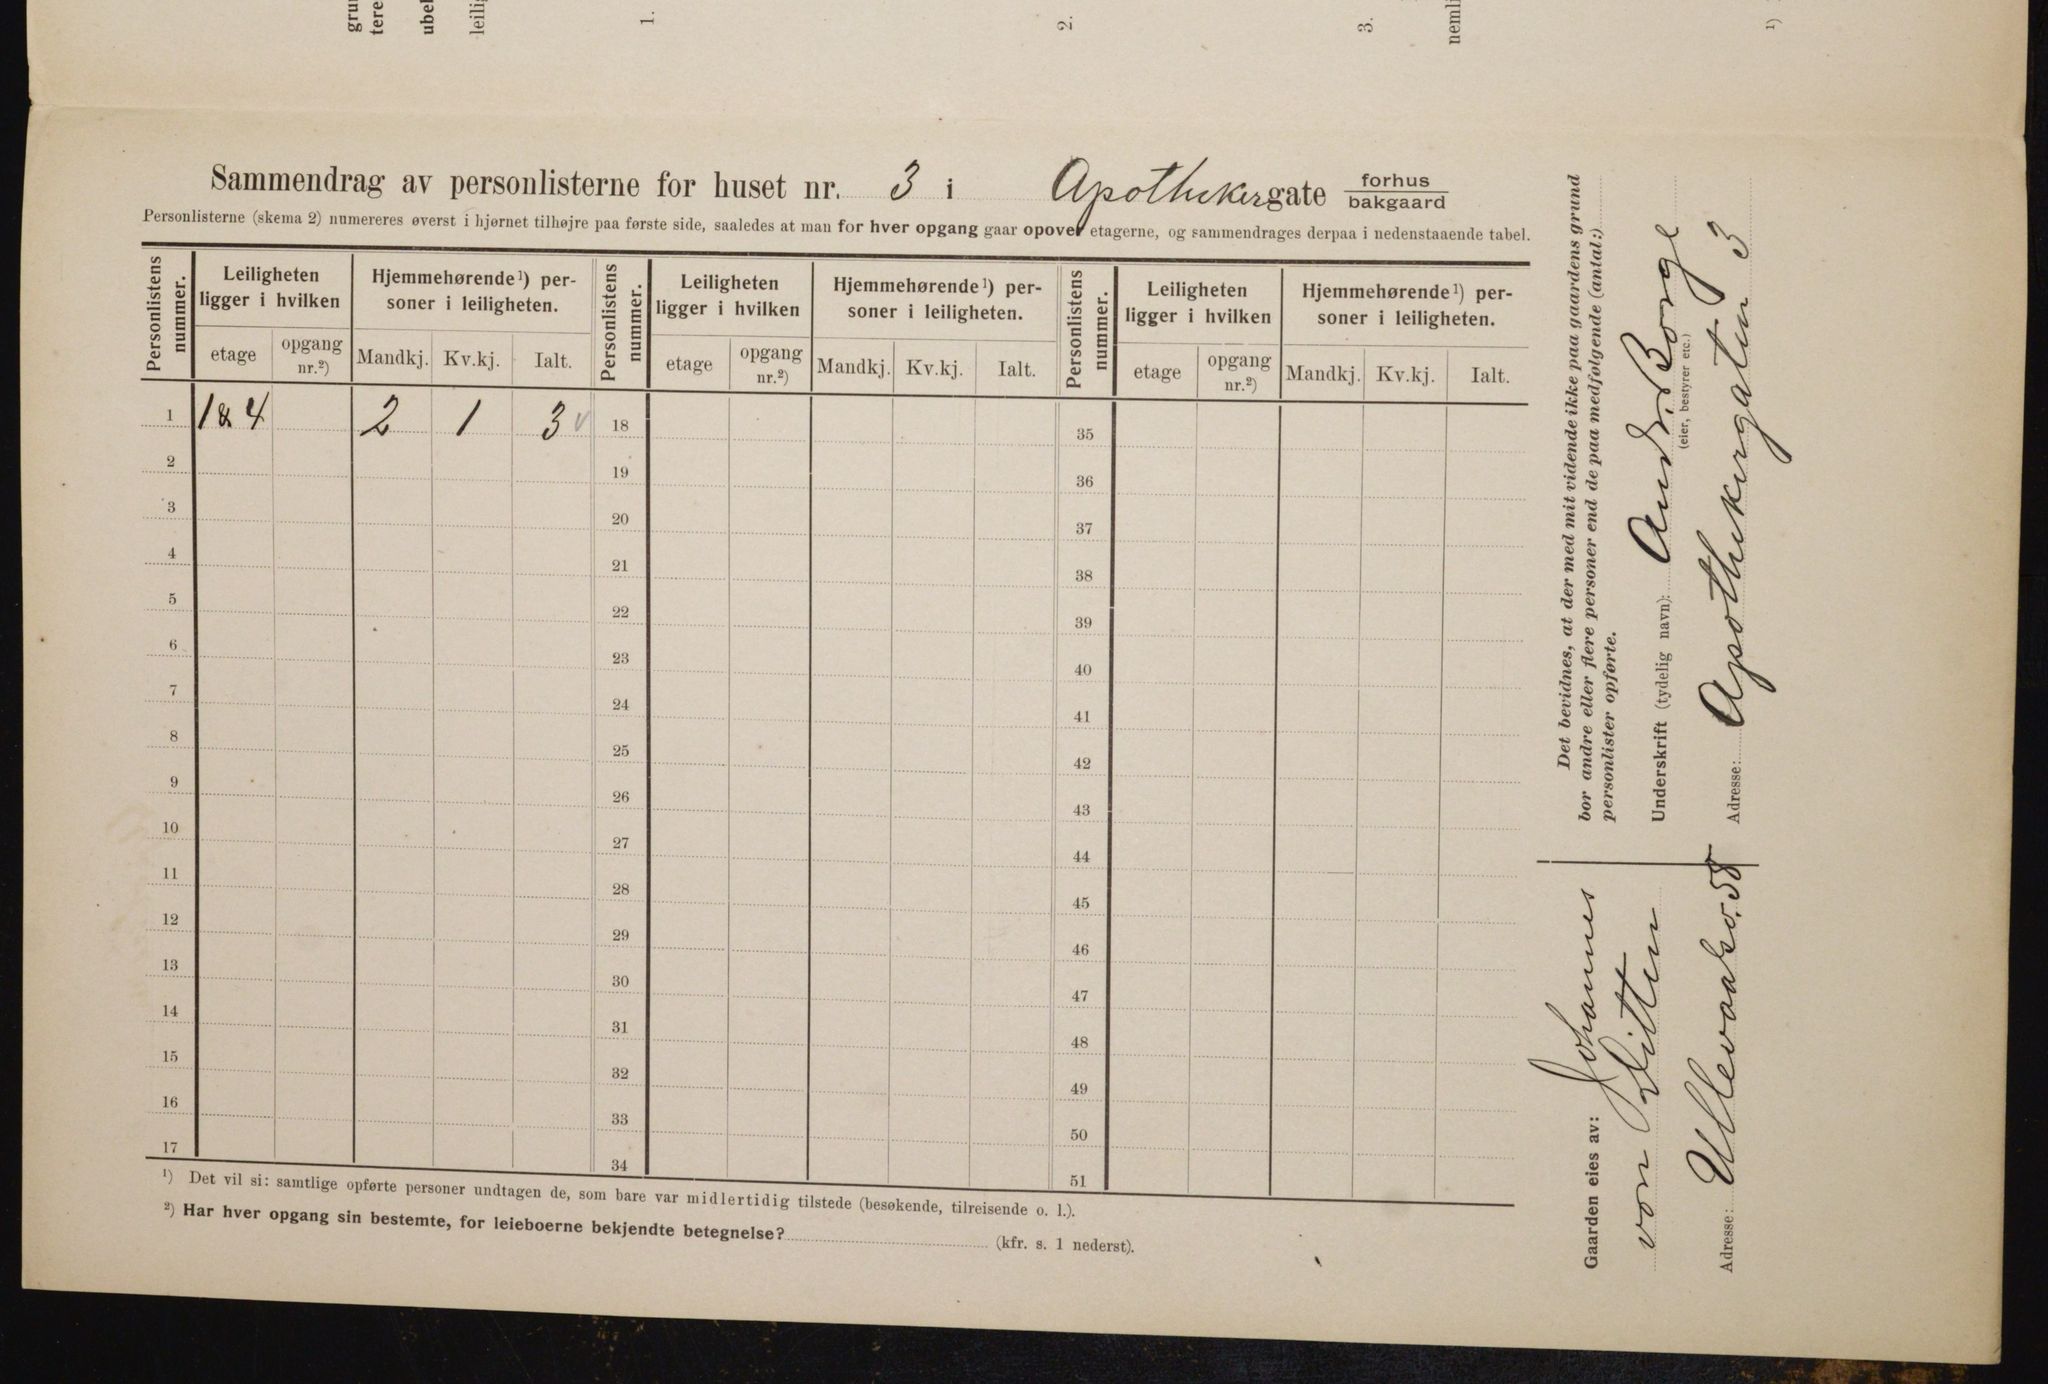 grun
tere
ubel
leilig
1.
2.
3.
nemli
1)
Sammendrag av personlisterne for huset nr. 3 i Apothekergate forhus bakgaard
Personlisterne (skema 2) numereres øverst i hjørnet tilhøjre paa første side, saaledes at man for hver opgang gaar opover etagerne, og sammendrages derpaa i nedenstaaende tabel.
Personlistens nummer. Leiligheten ligger i hvilken Hjemmehørende¹) personer i leiligheten. Personlistens nummer. Leiligheten ligger i hvilken Hjemmehørende¹) personer i leiligheten. Personlistens nummer. Leiligheten ligger i hvilken Hjemmehørende¹) personer i leiligheten.
etage opgang nr.²) Mandkj. Kv.kj. Ialt. etage opgang nr.²) Mandkj. Kv.kj. Ialt. etage opgang nr.²) Mandkj. Kv.kj. Ialt.
1 1 & 4 2 1 3 18 35
2 19 36
3 20 37
4 21 38
5 22 39
6 23 40
7 24 41
8 25 42
9 26 43
10 27 44
11 28 45
12 29 46
13 30 47
14 31 48
15 32 49
16 33 50
17 34 51
¹) Det vil si: samtlige opførte personer undtagen de, som bare var midlertidig tilstede (besøkende, tilreisende o. l.).
²) Har hver opgang sin bestemte, for leieboerne bekjendte betegnelse? (kfr. s. 1 nederst).
Det bevidnes, at der med mit vidende ikke paa gaardens grund
bor andre eller flere personer end de paa medfølgende (antal:)
personlister opførte.
Underskrift (tydelig navn): Andr. Borge
(eier, bestyrer etc.)
Adresse: Apothekergaten 3
Gaarden eies av: Johannes
von Ditten
Adresse: Ullevaalsv. 58